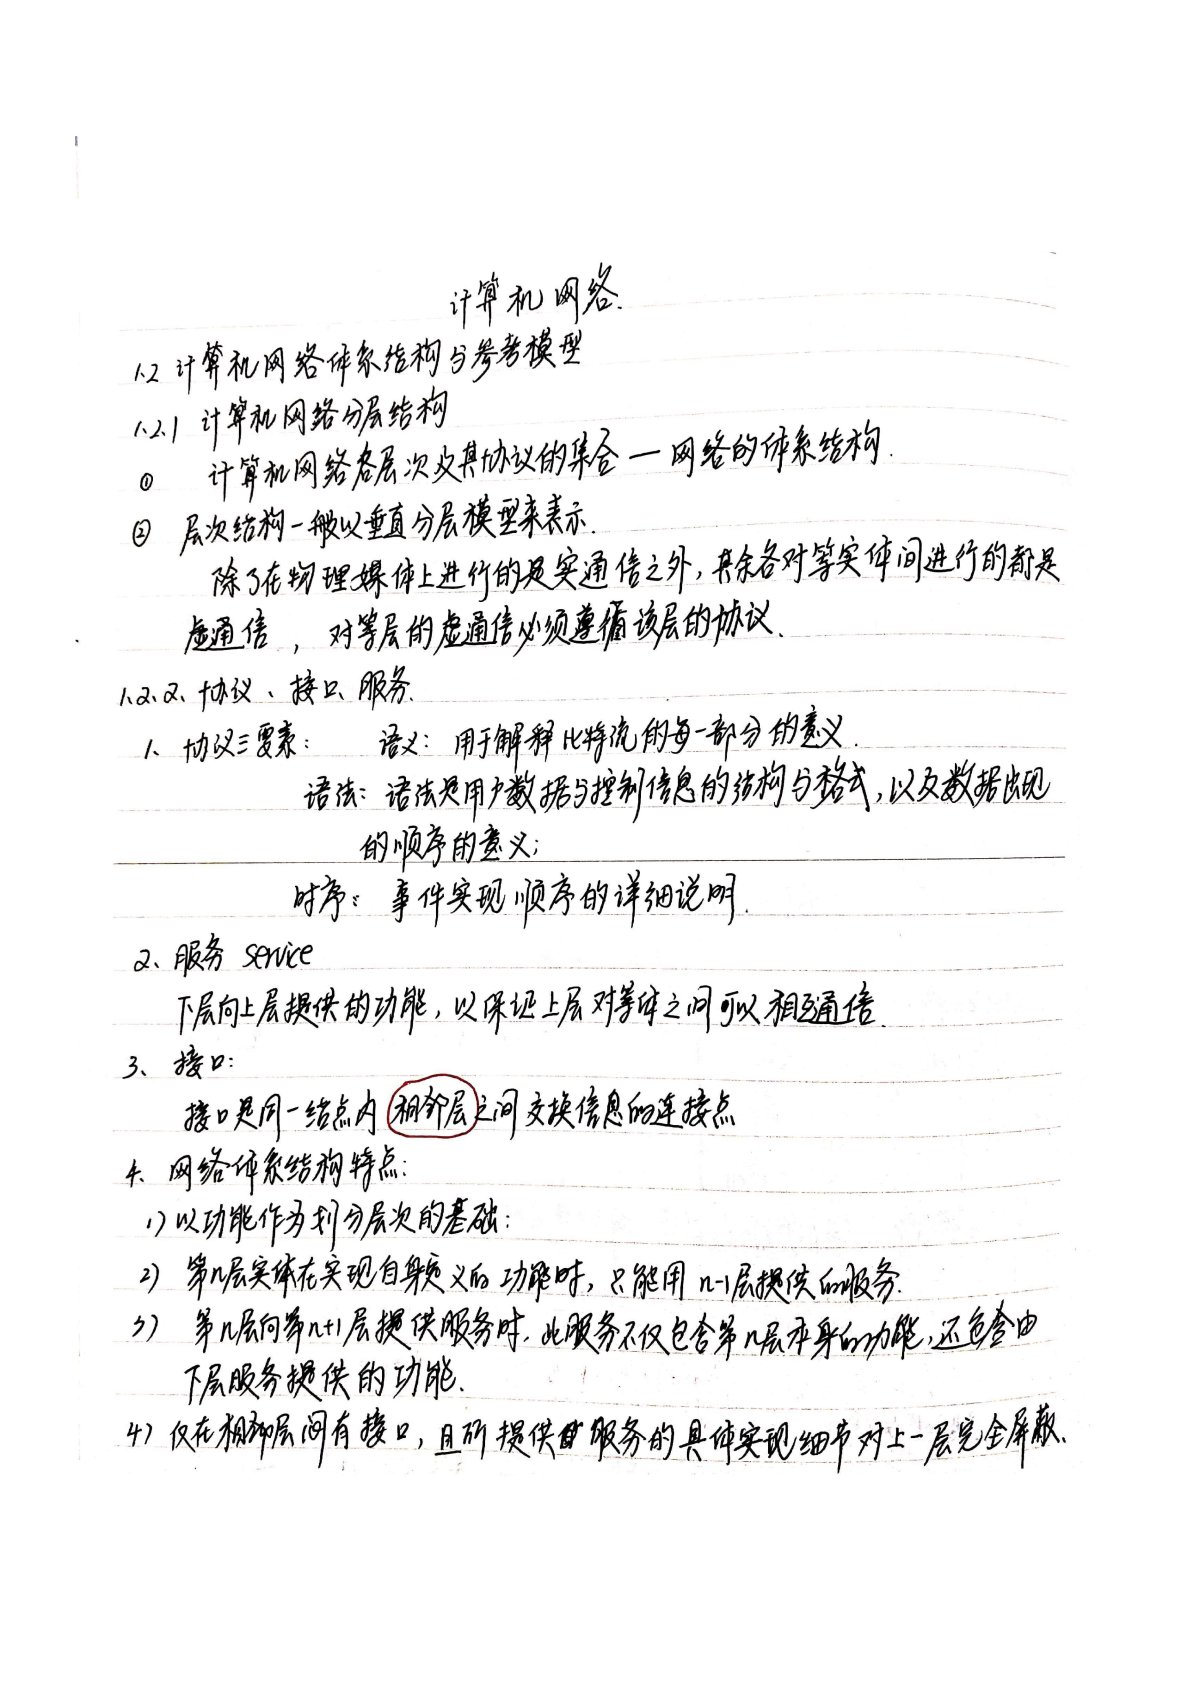 计算机网络.
1.2 计算机网络体系结构与参考模型
1.2.1 计算机网络分层结构
① 计算机网络各层次及其协议的集合 — 网络的体系结构.
② 层次结构一般以垂直分层模型来表示.
除了在物理媒体上进行的是实通信之外, 其余各对等实体间进行的都是
虚通信 , 对等层的虚通信必须遵循该层的协议.
1.2.2、协议、接口、服务.
1、协议三要素: 语义: 用于解释比特流的每一部分的意义.
语法: 语法是用户数据与控制信息的结构与格式, 以及数据出现
的顺序的意义;
时序: 事件实现顺序的详细说明.
2、服务 service
下层向上层提供的功能, 以保证上层对等体之间可以相互通信.
3、接口:
接口是同一结点内相邻层之间交换信息的连接点
4、网络体系结构特点:
1) 以功能作为划分层次的基础;
2) 第n层实体在实现自身定义的功能时, 只能用 n-1层提供的服务.
3) 第n层向第n+1层提供服务时. 此服务不仅包含第n层本身的功能, 还包含由
下层服务提供的功能.
4) 仅在相邻层间有接口, 且所提供服务的具体实现细节对上一层完全屏蔽.